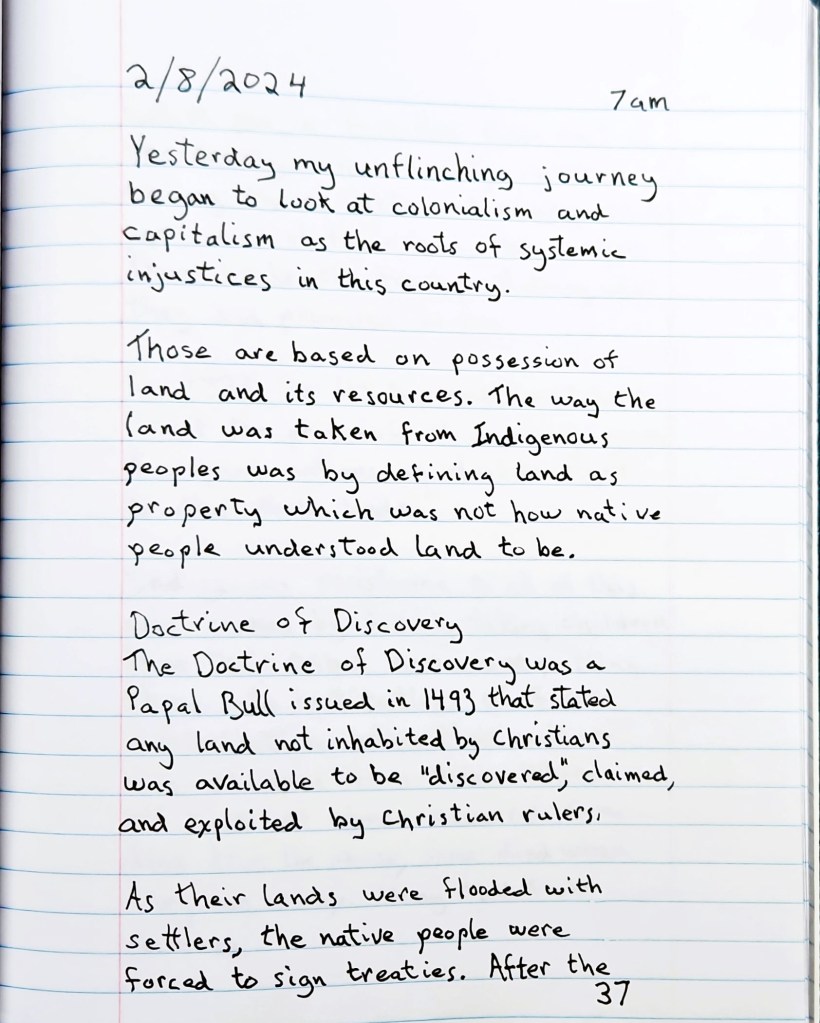 2/8/2024 7am
Yesterday my unflinching journey
began to look at colonialism and
capitalism as the roots of systemic
injustices in this country.
Those are based on possession of
land and its resources. The way the
land was taken from Indigenous
peoples was by defining land as
property which was not how native
people understood land to be.
Doctrine of Discovery
The Doctrine of Discovery was a
Papal Bull issued in 1493 that stated
any land not inhabited by Christians
was available to be "discovered", claimed,
and exploited by Christian rulers.
As their lands were flooded with
settlers, the native people were
forced to sign treaties. After the
37